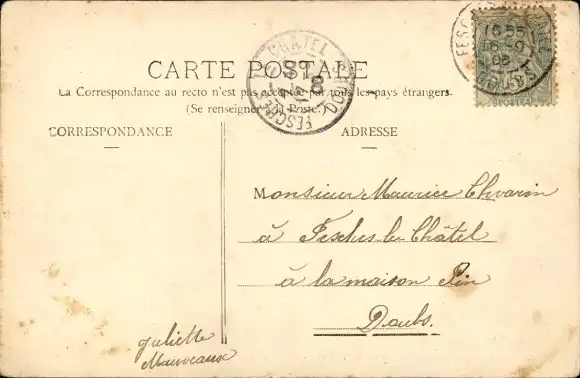 CARTE POSTALE
La Correspondance au recto n'est pas acceptée par tous les pays étrangers.
(Se renseigner à la Poste.)
CORRESPONDANCE
ADRESSE
CHATEL
FESCHES
DOUBS
16 55
16-9
POSTES
Monsieur Maurice Chvarin
à Fesches le Châtel
à la maison Pin
Doubs.
Juliette
Mauveaux